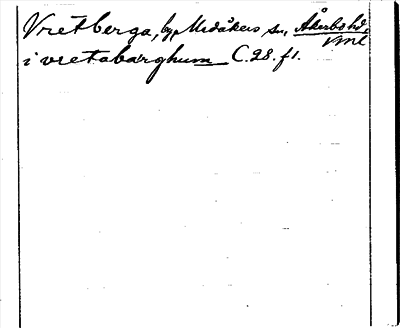 Vretberga, by, Medåkers sn, Åkerbo hd,
Vml
i vretabarghum C.28.f1.